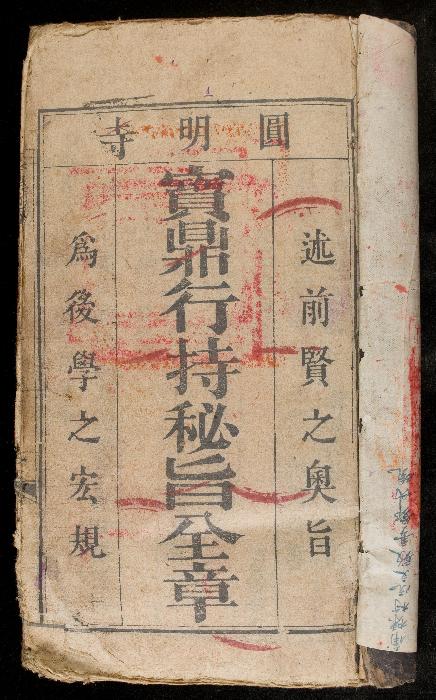 圓明寺
述前賢之奧旨
寶鼎行持秘旨全章
為後學之宏規